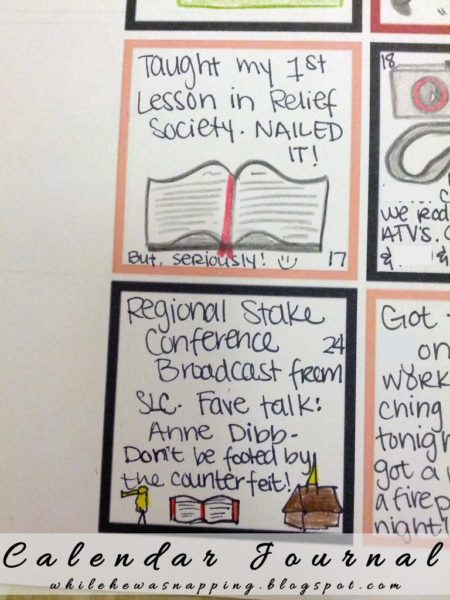 Taught my 1st
Lesson in Relief
Society. NAILED
IT!
But, seriously!
17
18
we rod
ATV's. C
&
&
Regional Stake
Conference 24
Broadcast from
SLC. Fave talk:
Anne Dibb-
Don't be fooled by
the counterfeit!
Got
on
work
ching
tonigh
got a
a fire p
night!
Calendar Journal
whilehewasnapping.blogspot.com